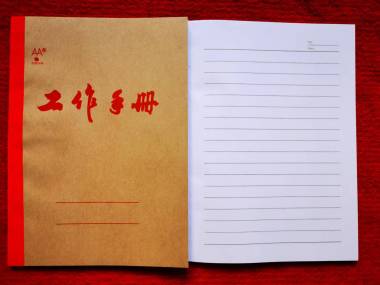 AA
工作手册